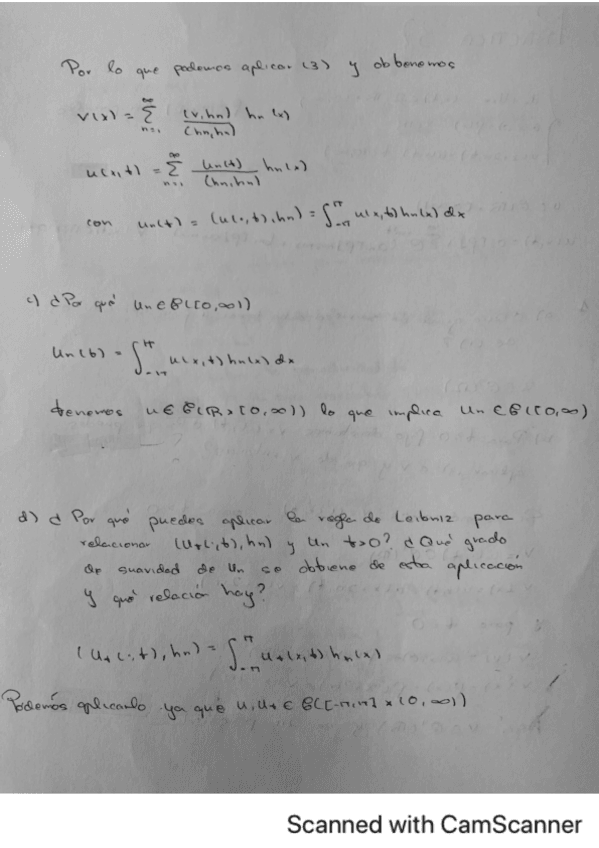 Por lo que podemos aplicar (3) y obtenemos
v(x) = ∑_{n=1}^{∞} (v,hn)/(hn,hn) hn(x)
u(x,t) = ∑_{n=1}^{∞} un(t)/(hn,hn) hn(x)
con un(t) = (u(·,t),hn) = ∫_{-π}^{π} u(x,t)hn(x)dx
c) ¿Por qué un∈C([0,∞))
un(t) = ∫_{-π}^{π} u(x,t)hn(x)dx
tenemos u∈C(R×[0,∞)) lo que implica un∈C([0,∞)
d) ¿Por qué puedes aplicar la regla de Leibniz para
relacionar (ut(·,t),hn) y un t>0? ¿Qué grado
de suavidad de un se obtiene de esta aplicación
y qué relación hay?
(ut(·,t),hn) = ∫_{-π}^{π} ut(x,t)hn(x)
Podemos aplicarlo ya que u,ut∈C([-π,π]×(0,∞))
Scanned with CamScanner